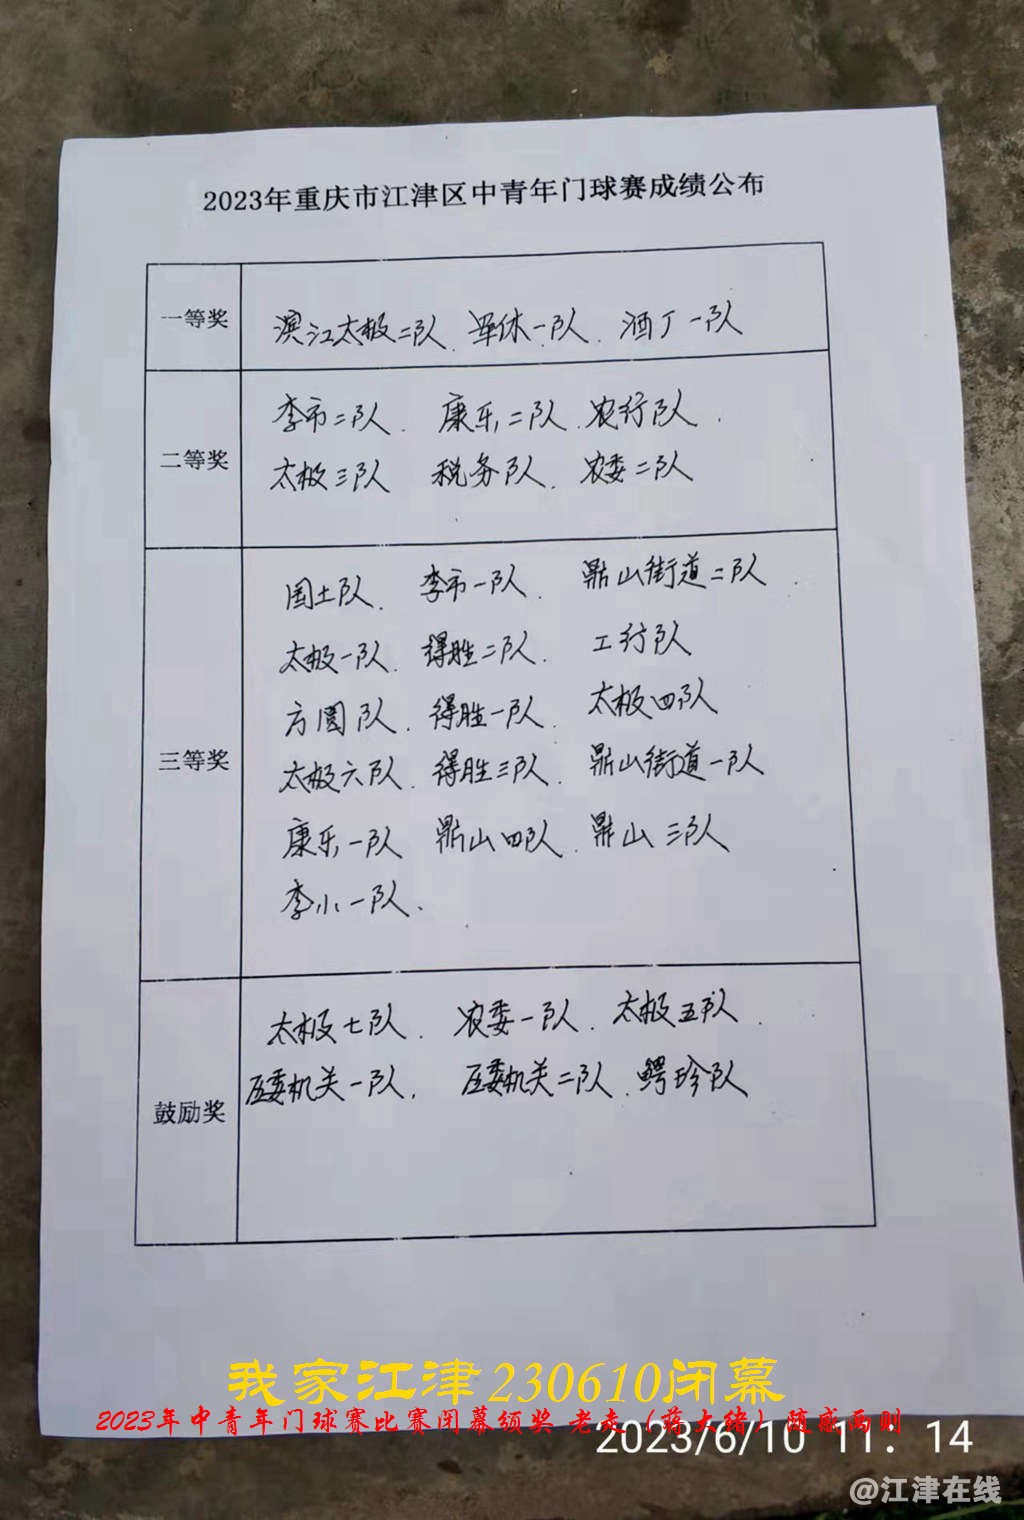 2023年重庆市江津区中青年门球赛成绩公布
一等奖
滨江太极二队、军休一队、酒厂一队
二等奖
李市二队、康乐二队、农行队、
太极三队 税务队、农委二队
三等奖
国土队、李市一队、鼎山街道二队、
太极一队、得胜二队、工行队
方圆队、得胜一队、太极四队
太极六队、得胜三队、鼎山街道一队
康乐一队 鼎山四队、鼎山三队
李小一队、
鼓励奖
太极七队、农委一队、太极五队、
区委机关一队、区委机关二队、鳄珍队
我家江津230610闭幕
2023年中青年门球赛比赛闭幕颁奖 老走（蒋大绪）随感两则
2023/6/10 11：14
@江津在线